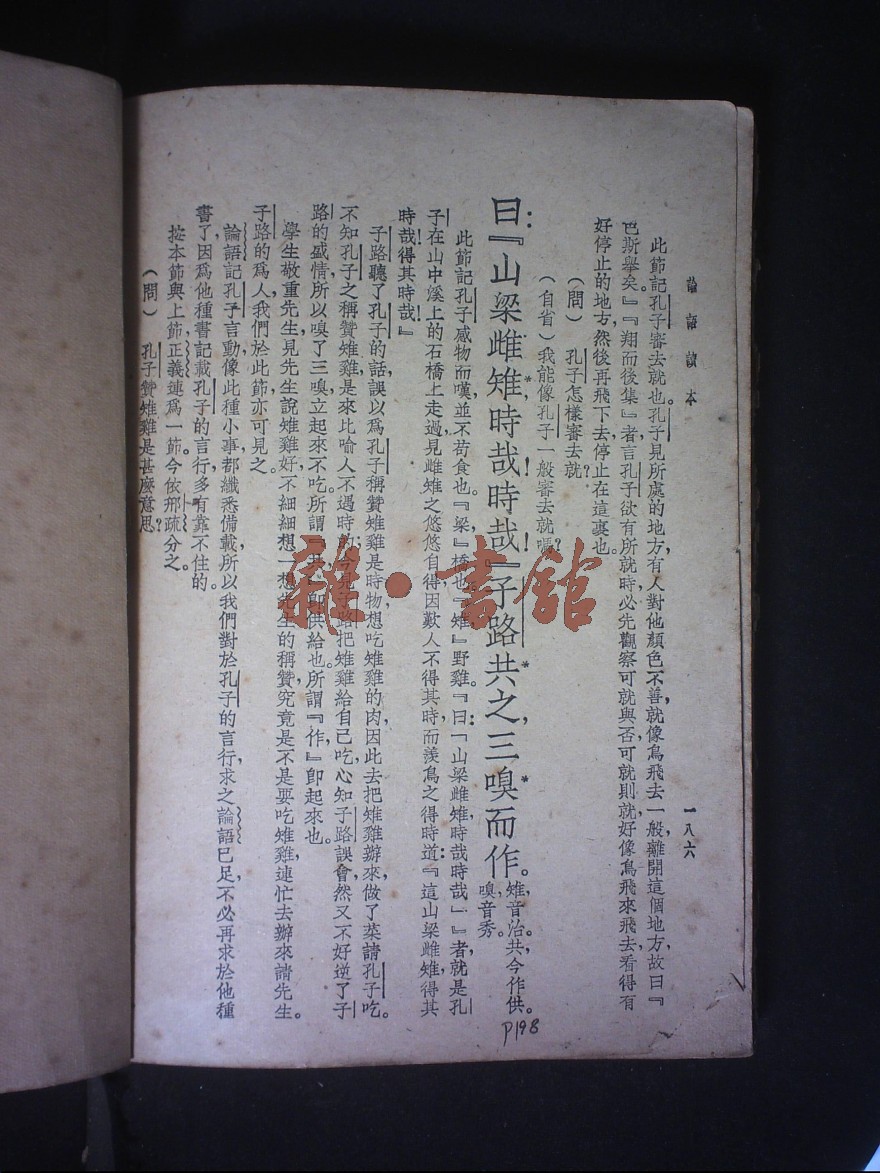 論語讀本
一八六
此節記孔子審去就也。孔子見所處的地方,有人對他顏色不善,就像鳥飛去一般,離開這個地方,故曰『
色斯舉矣。』『翔而後集』者,言孔子欲有所就時,必先觀察可就與否,可就則就,好像鳥飛來飛去,看得有
好停止的地方,然後再飛下去,停止在這裏也。
(問) 孔子怎樣審去就?
(自省)我能像孔子一般審去就嗎?
曰:『山梁雌雉,時哉!時哉!』子路共之,三嗅而作。
雉,音治。共,今作供。
嗅,音秀。
此節記孔子感物而嘆,並不苟食也。『梁,』橋也。『雉』野雞。『曰:「山梁雌雉,時哉時哉」』者,就是孔
子在山中溪上的石橋上走過,見雌雉之悠悠自得,因歎人不得其時,而羨鳥之得時,道:『這山梁雌雉,得其
時哉!得其時哉!』
子路聽了孔子的話,誤以爲孔子稱贊雉雞是時物,想吃雉雞的肉,因此去把雉雞辦來,做了菜,請孔子吃。
不知孔子之稱贊雉雞,是來比喻人不遇時的;今見子路把雉雞給自己吃,心知子路誤會,然又不好逆了子
路的盛情,所以嗅了三嗅,立起來不吃。所謂『共,』卽供給也。所謂『作』卽起來也。
學生敬重先生,見先生說雉雞好,不細細想一想先生的稱贊,究竟是不是要吃雉雞,連忙去辦來請先生。
子路的爲人,我們於此節亦可見之。
論語記孔子言動,像此種小事,都纖悉備載,所以我們對於孔子的言行,求之論語已足,不必再求於他種
書了,因爲他種書記載孔子的言行,多有靠不住的。
按本節與上節,正義連爲一節。今依邢疏分之。
(問) 孔子贊雉雞是甚麼意思?
雜·書館
P198